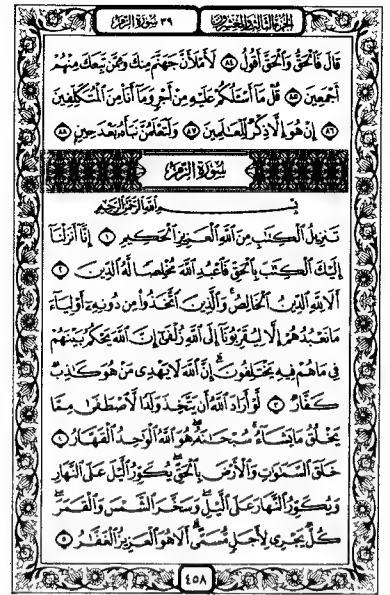 الجزء الثالث والعشرون ٣٩ سورة الزمر
قَالَ فَٱلْحَقُّ وَٱلْحَقَّ أَقُولُ ٨٤ لَأَمْلَأَنَّ جَهَنَّمَ مِنكَ وَمِمَّن تَبِعَكَ مِنْهُمْ
أَجْمَعِينَ ٨٥ قُلْ مَآ أَسْـَٔلُكُمْ عَلَيْهِ مِنْ أَجْرٍ وَمَآ أَنَا۠ مِنَ ٱلْمُتَكَلِّفِينَ
٨٦ إِنْ هُوَ إِلَّا ذِكْرٌ لِّلْعَٰلَمِينَ ٨٧ وَلَتَعْلَمُنَّ نَبَأَهُۥ بَعْدَ حِينٍۭ ٨٨
سورة الزمر
بِسْمِ ٱللَّهِ ٱلرَّحْمَٰنِ ٱلرَّحِيمِ
تَنزِيلُ ٱلْكِتَٰبِ مِنَ ٱللَّهِ ٱلْعَزِيزِ ٱلْحَكِيمِ ١ إِنَّآ أَنزَلْنَآ
إِلَيْكَ ٱلْكِتَٰبَ بِٱلْحَقِّ فَٱعْبُدِ ٱللَّهَ مُخْلِصًا لَّهُ ٱلدِّينَ ٢
أَلَا لِلَّهِ ٱلدِّينُ ٱلْخَالِصُ ۚ وَٱلَّذِينَ ٱتَّخَذُوا۟ مِن دُونِهِۦٓ أَوْلِيَآءَ
مَا نَعْبُدُهُمْ إِلَّا لِيُقَرِّبُونَآ إِلَى ٱللَّهِ زُلْفَىٰٓ إِنَّ ٱللَّهَ يَحْكُمُ بَيْنَهُمْ
فِى مَا هُمْ فِيهِ يَخْتَلِفُونَ ۗ إِنَّ ٱللَّهَ لَا يَهْدِى مَنْ هُوَ كَٰذِبٌ
كَفَّارٌ ٣ لَّوْ أَرَادَ ٱللَّهُ أَن يَتَّخِذَ وَلَدًا لَّٱصْطَفَىٰ مِمَّا
يَخْلُقُ مَا يَشَآءُ ۚ سُبْحَٰنَهُۥ ۖ هُوَ ٱللَّهُ ٱلْوَٰحِدُ ٱلْقَهَّارُ ٤
خَلَقَ ٱلسَّمَٰوَٰتِ وَٱلْأَرْضَ بِٱلْحَقِّ ۖ يُكَوِّرُ ٱلَّيْلَ عَلَى ٱلنَّهَارِ
وَيُكَوِّرُ ٱلنَّهَارَ عَلَى ٱلَّيْلِ ۖ وَسَخَّرَ ٱلشَّمْسَ وَٱلْقَمَرَ ۖ
كُلٌّ يَجْرِى لِأَجَلٍ مُّسَمًّى ۗ أَلَا هُوَ ٱلْعَزِيزُ ٱلْغَفَّٰرُ ٥
٤٥٨